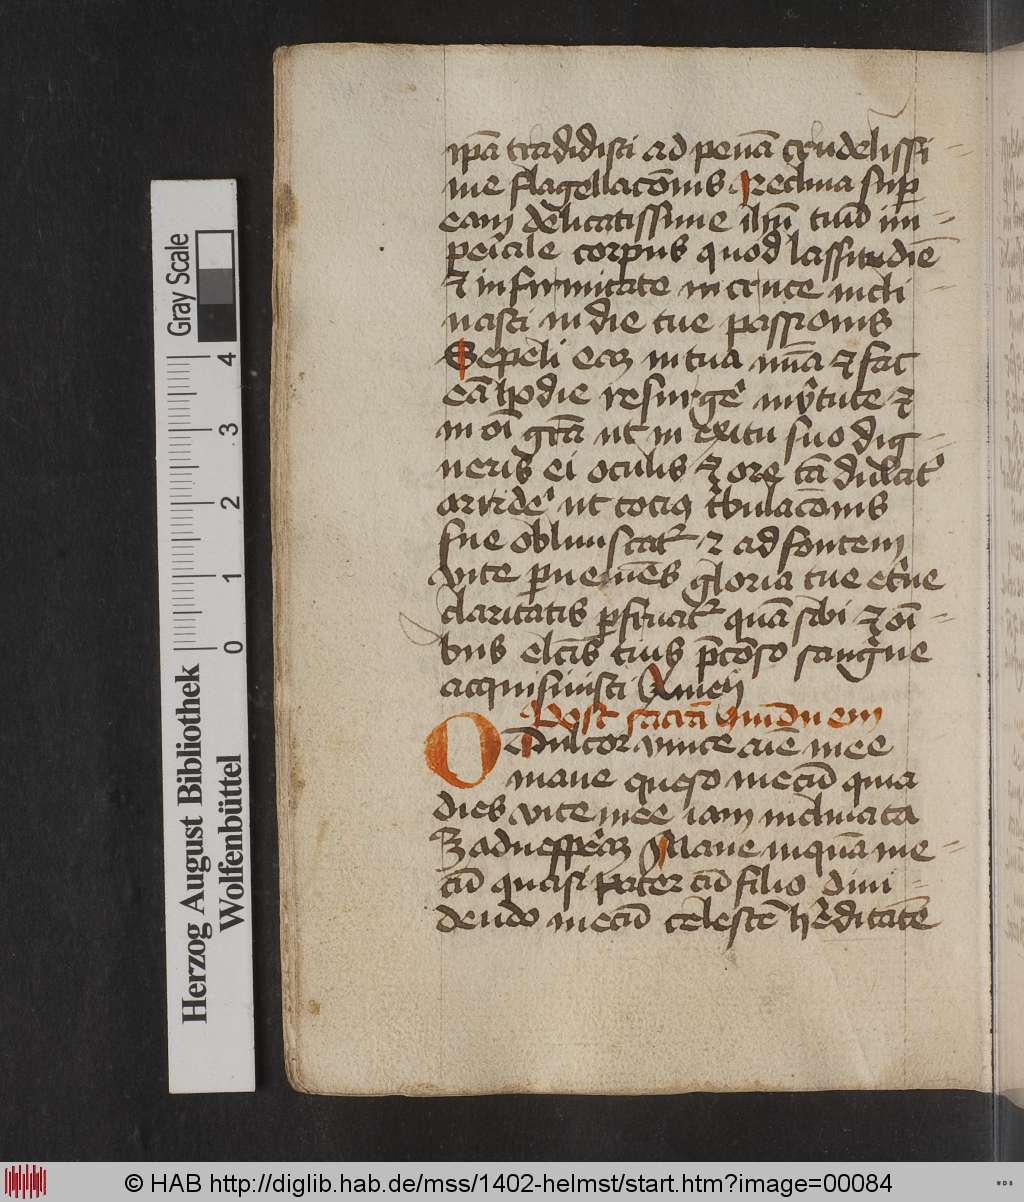 ip̄ā tradidisti ad penā crudelissi
me flagellacōnis reclina sup
eam delicatissime ihū tuū im
pe͛iale corpus quod lassitudīe
⁊ infirmitate in cruce incli
nasti in die tue passionis
Sepeli eaꝫ in tua mīa ⁊ fac
eā hodie resurge͛ in v͛tute ⁊
in oī gr̄a ut in exitu suo dig
neris ei oculis ⁊ ore tā dulcit͛
arride͛ ut tociꝰ t͛bulacōnis
sue obliuiscat͛ ⁊ ad fontem
vite ꝑueniēs gloria tue et͛ne
claritatis ꝑfruat͛ quā sibi ⁊ oī
bus elc̄is tuis p̄cōso sangͥne
acquisiuisti Amen
Post sacrā cōmūnionem
O Dulcor vnice aīe mee
mane queso mecū quia
dies vite mee iam inclinata
⁊ aduespe͛aꝫ Mane inquā me
cū quasi pater cū filio diui
dendo mecū celestē h͛editatē
Herzog August Bibliothek
Wolfenbüttel
Gray Scale
0 1 2 3 4
© HAB http://diglib.hab.de/mss/1402-helmst/start.htm?image=00084